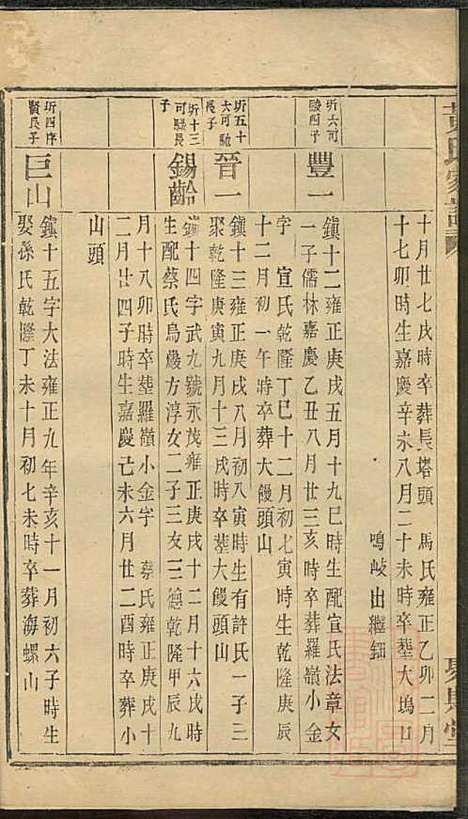 十月廿七戌時卒葬長塔頭　馬氏雍正乙卯二月
十七卯時生嘉慶辛未八月二十未時卒塟大塢口
鳴岐出繼鈿
圻六可
陵四子
豐一
鎮十二雍正庚戌五月十九巳時生配宣氏法章女
一子儒林嘉慶乙丑八月廿三亥時卒塟羅嶺小金
字　宣氏乾隆丁巳十二月初七寅時生乾隆庚辰
十二月初一午時卒葬大饅頭山
圻五十
六可馳
長子
晉一
鎮十三雍正庚戌八月八寅時生有許氏一子三
聚乾隆庚寅九月十三戌時卒塟大饅頭山
圻十三
可驥長
子
錫齡
鎮十四字武九號永茂雍正庚戌十二月十六戌時
生配蔡氏烏巖方淳女二子三女二德乾隆甲辰九
月十八卯時卒塟羅嶺小金字　蔡氏雍正庚戌十
二月廿四子時生嘉慶己未六月廿二酉時卒葬小
山頭
圻四序
賢長子
巨山
鎮十五字大法雍正九年辛亥十一月初六子時生
娶孫氏乾隆丁未十月初七未時卒葬海螺山